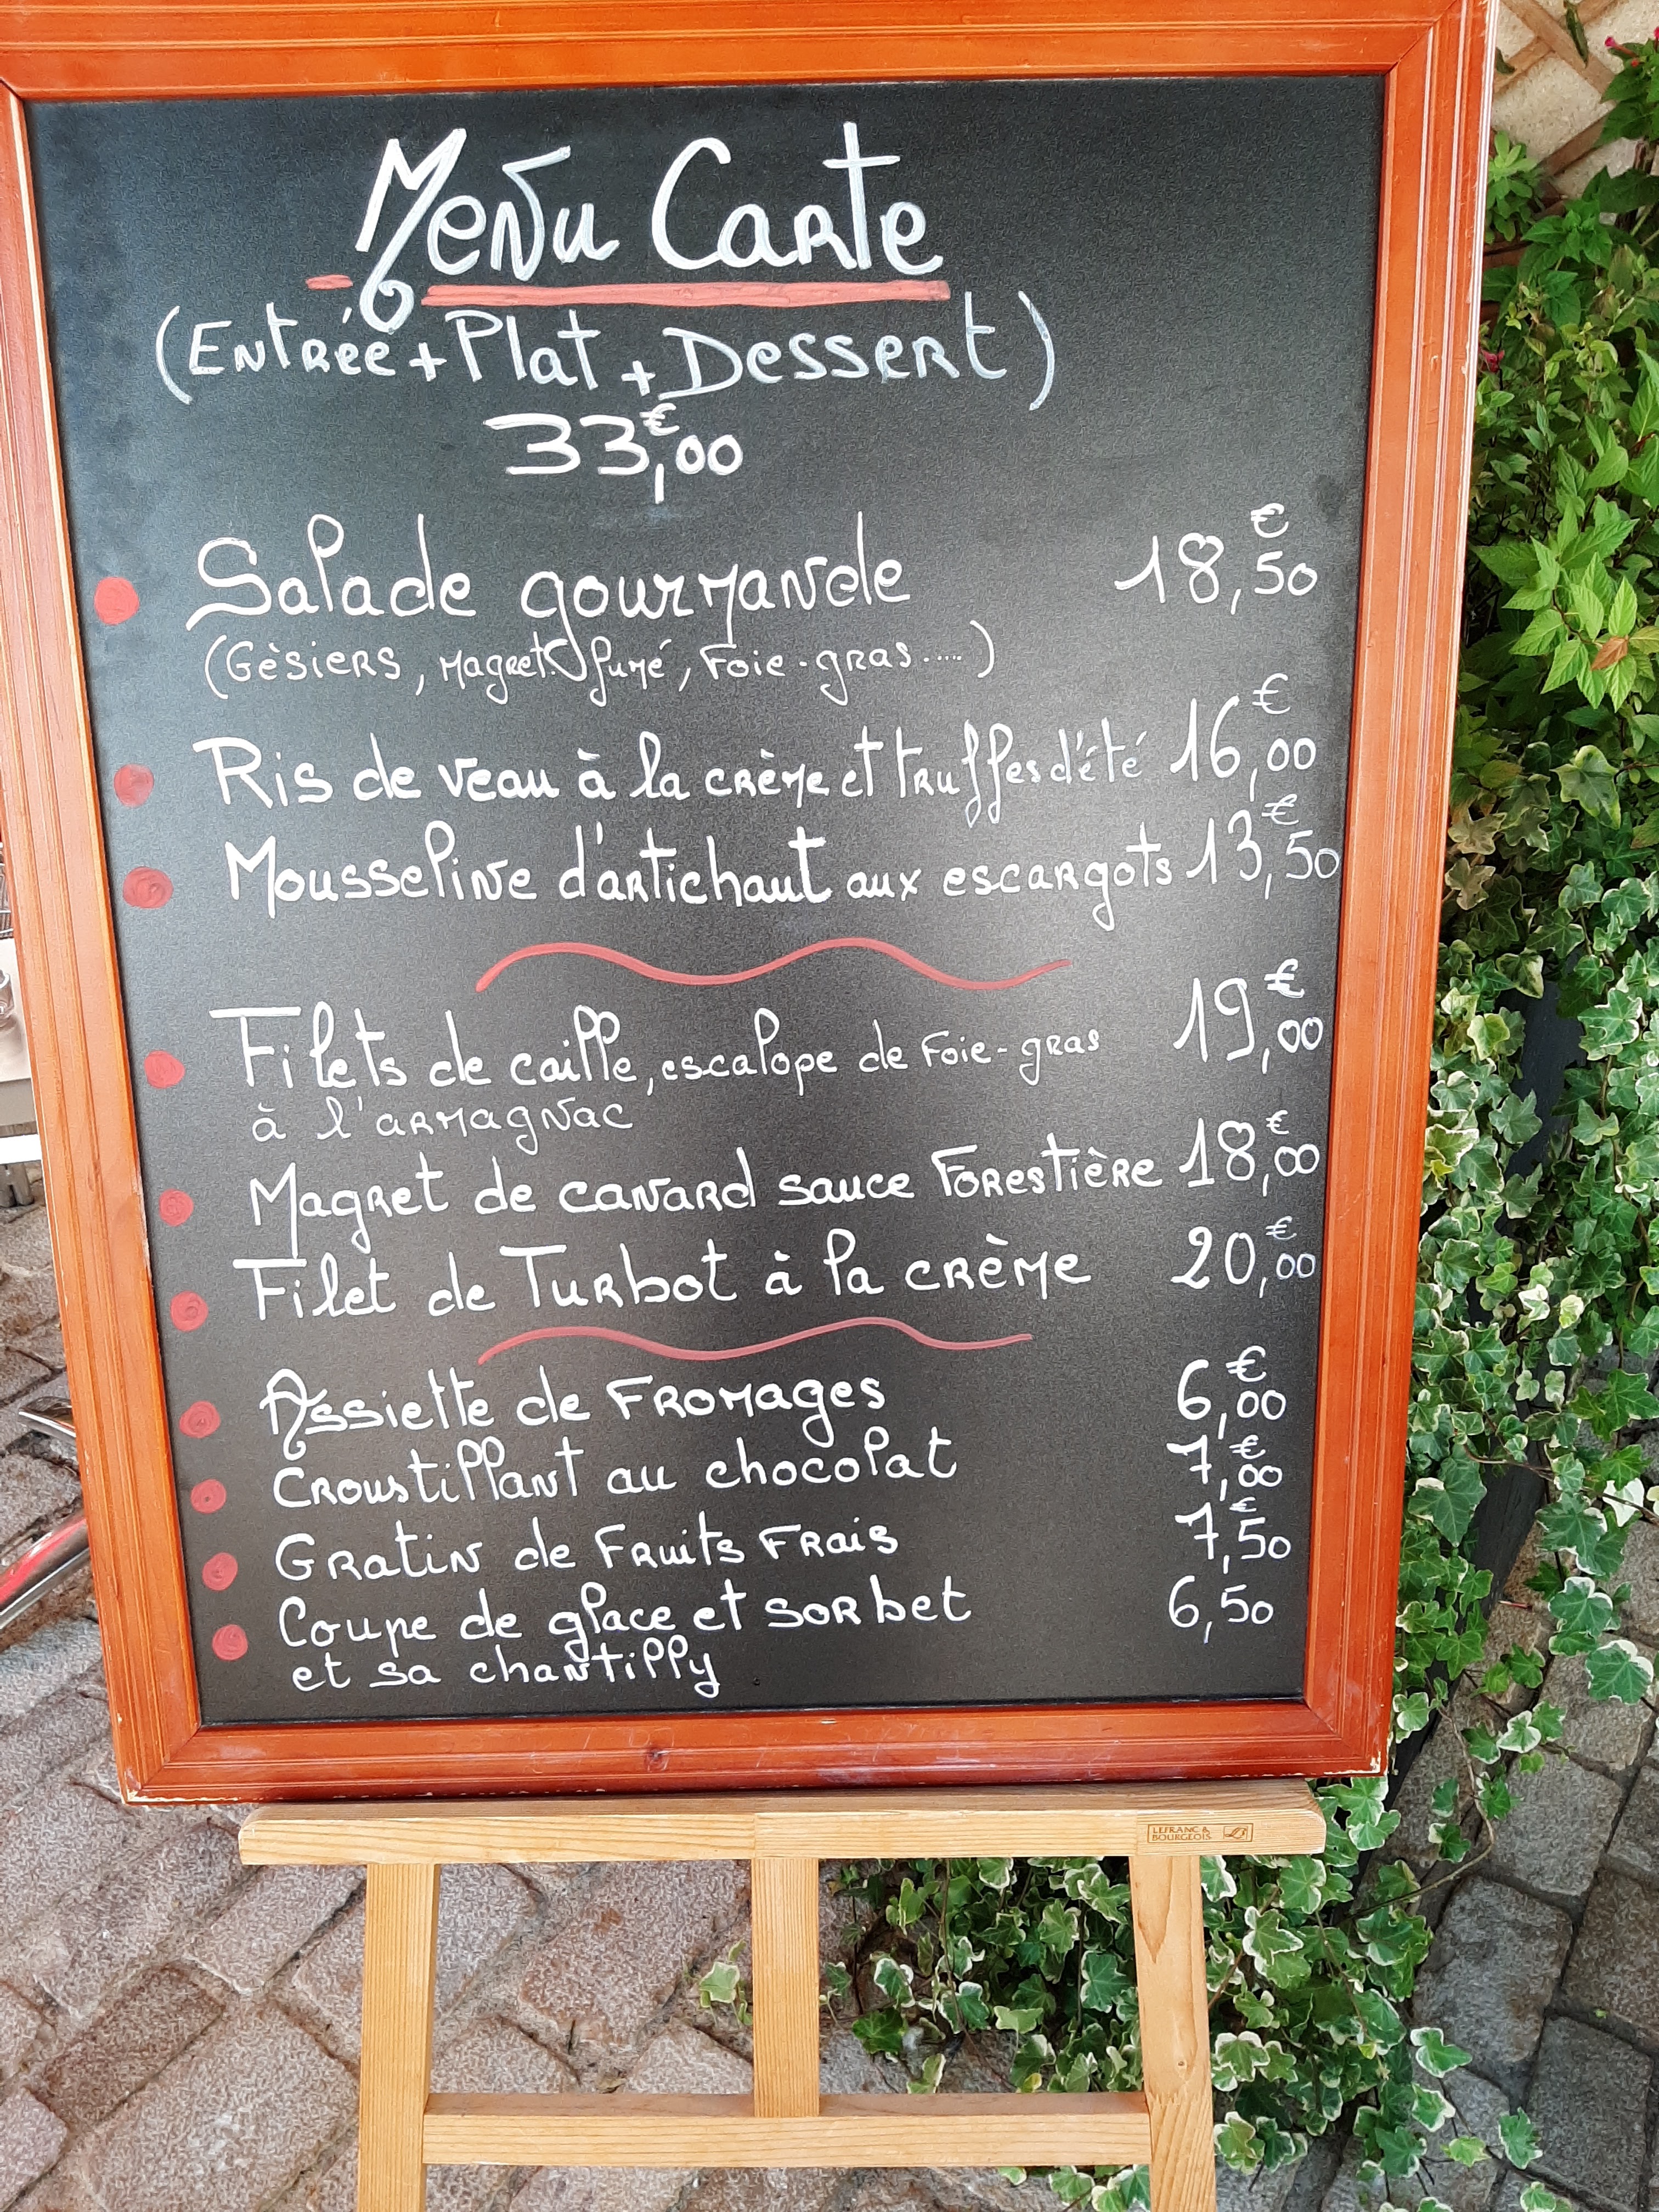 Menu Carte
(Entrée + Plat + Dessert)
33,€00
Salade gourmande 18,€50
(Gèsiers, Magret fumé, Foie-gras.....)
Ris de veau à la crème et truffes d'été 16,€00
Mousseline d'artichaut aux escargots 13,€50
Filets de caille, escalope de Foie-gras 19,€00
à l'armagnac
Magret de canard sauce Forestière 18,€00
Filet de Turbot à la crème 20,€00
Assiette de Fromages 6,€00
Croustillant au chocolat 7,€00
Gratin de Fruits Frais 7,€50
Coupe de glace et sorbet 6,50
et sa chantilly
LEFRANC &
BOURGEOIS